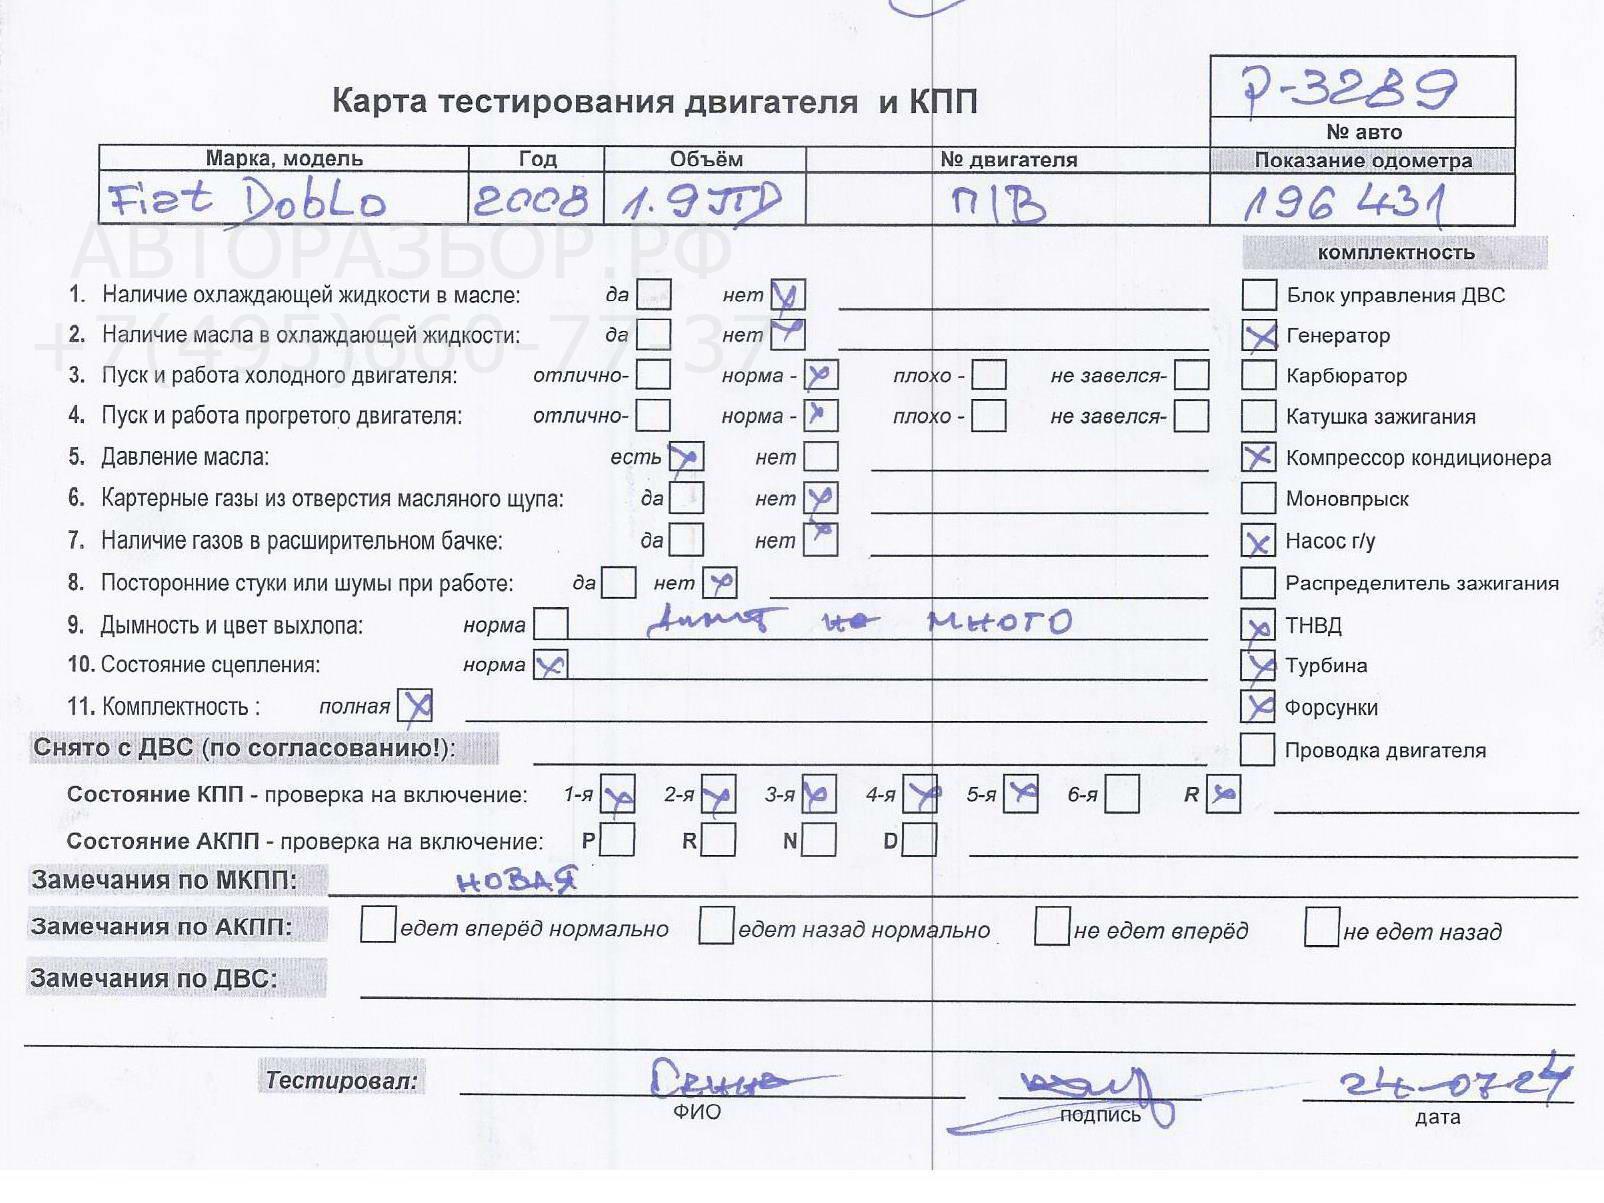 P-3289
Карта тестирования двигателя и КПП
№ авто
Марка, модель Год Объём № двигателя Показание одометра
Fiat Doblo 2008 1.9 ТТD П/В 196 431
АВТОРАЗБОР.РФ
комплектность
1. Наличие охлаждающей жидкости в масле: да нет Блок управления ДВС
+7(495)660-77-37
2. Наличие масла в охлаждающей жидкости: да нет Генератор
3. Пуск и работа холодного двигателя: отлично- норма - плохо - не завелся- Карбюратор
4. Пуск и работа прогретого двигателя: отлично- норма - плохо - не завелся- Катушка зажигания
5. Давление масла: есть нет Компрессор кондиционера
6. Картерные газы из отверстия масляного щупа: да нет Моновпрыск
7. Наличие газов в расширительном бачке: да нет Насос г/у
8. Посторонние стуки или шумы при работе: да нет Распределитель зажигания
9. Дымность и цвет выхлопа: норма дымит не много ТНВД
10. Состояние сцепления: норма Турбина
11. Комплектность : полная Форсунки
Снято с ДВС (по согласованию!): Проводка двигателя
Состояние КПП - проверка на включение: 1-я 2-я 3-я 4-я 5-я 6-я R
Состояние АКПП - проверка на включение: P R N D
Замечания по МКПП: новая
Замечания по АКПП: едет вперёд нормально едет назад нормально не едет вперёд не едет назад
Замечания по ДВС:
Тестировал: 24-07-24
ФИО подпись дата